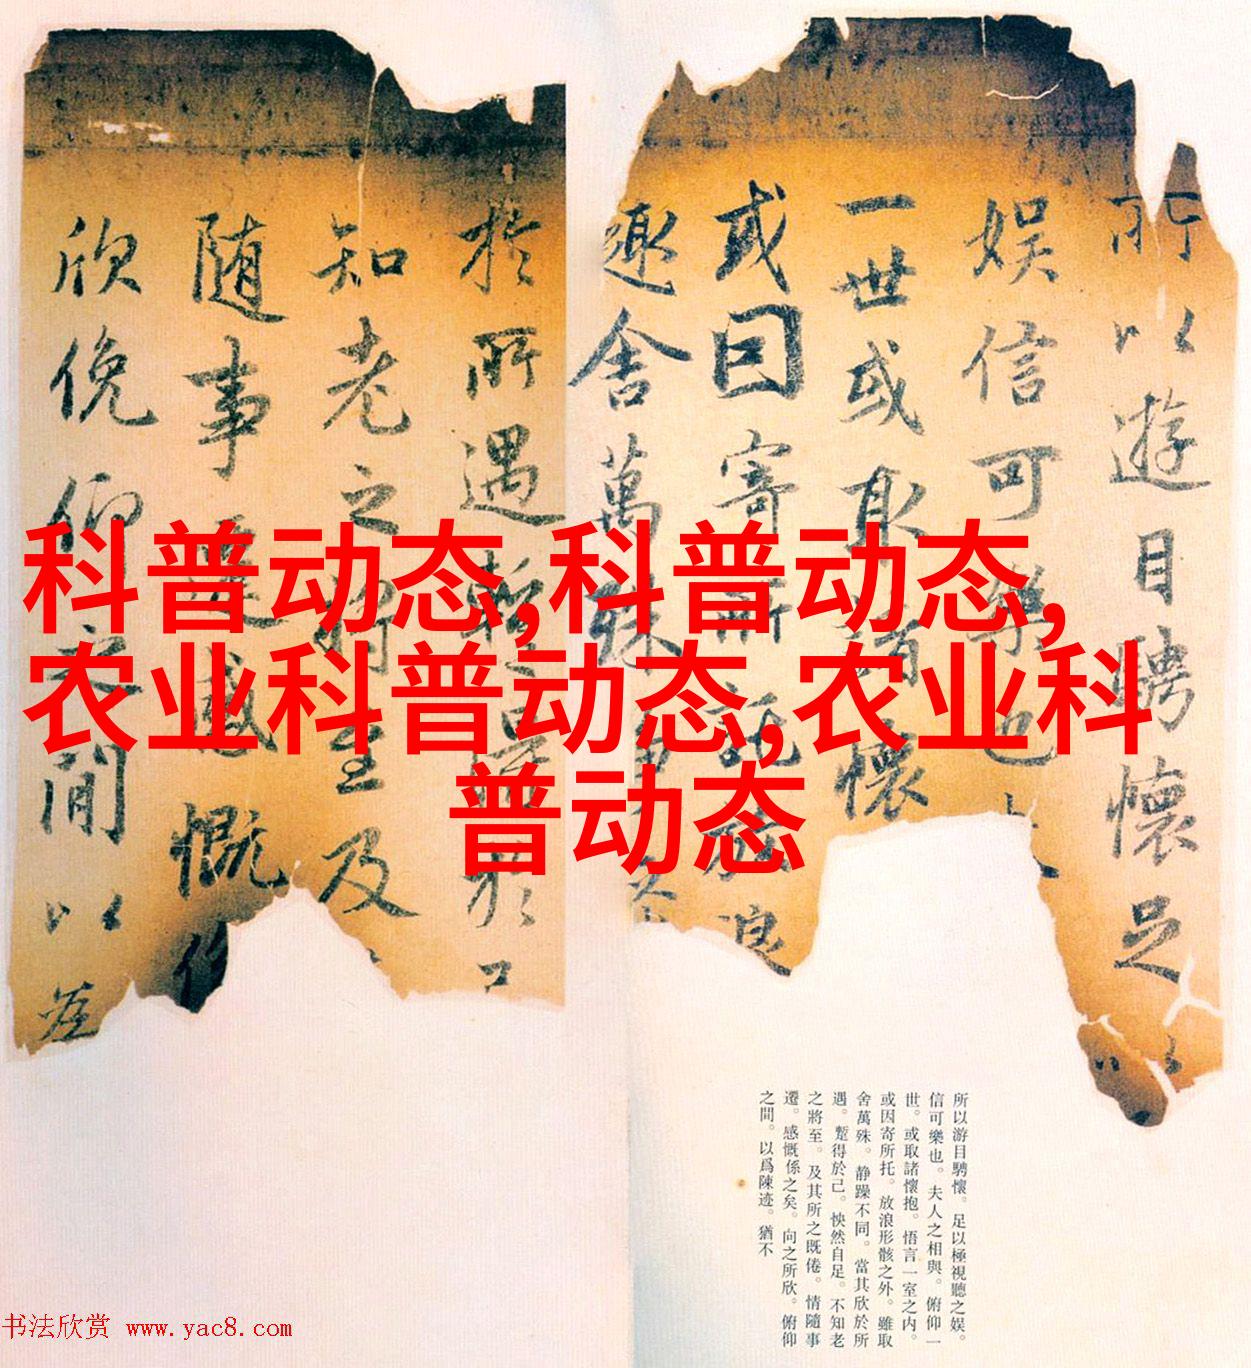 所以遊目聘懷足
娱信可樂也
一世或取諸懷
或因寄所託放浪
趣舍萬殊
於所遇暫得於
知老之将至及
随事遷感慨係
欣俛仰之間以為
科普动态,科普动态,
农业科普动态,农业科
普动态
所以游目騁懷。足以極視聽之娱。
信可樂也。夫人之相與。俯仰一
世。或取諸懷抱。悟言一室之内。
或因寄所托。放浪形骸之外。雖取
舍萬殊。静躁不同。當其欣於所
遇。蹔得於己。怏然自足。不知老
之將至。及其所之既倦。情隨事
遷。感慨係之矣。向之所欣。俯仰
之間。以爲陳迹。猶不
书法欣赏 www.yac8.com